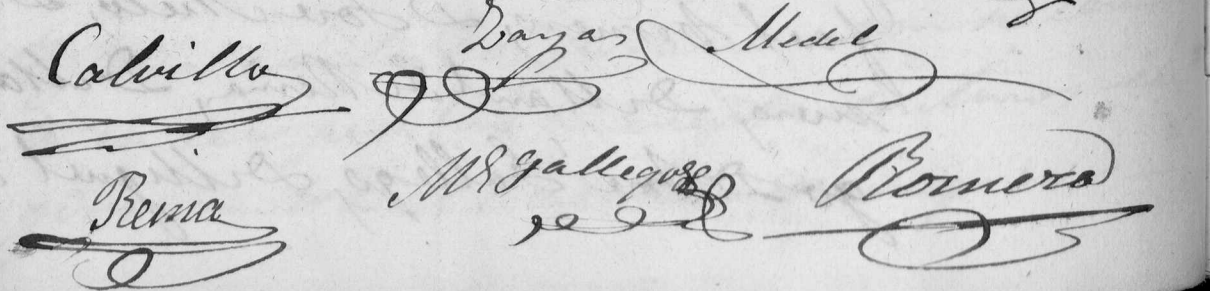 Calvillo Zayas Medel
Reina Ml Gallegos Romero